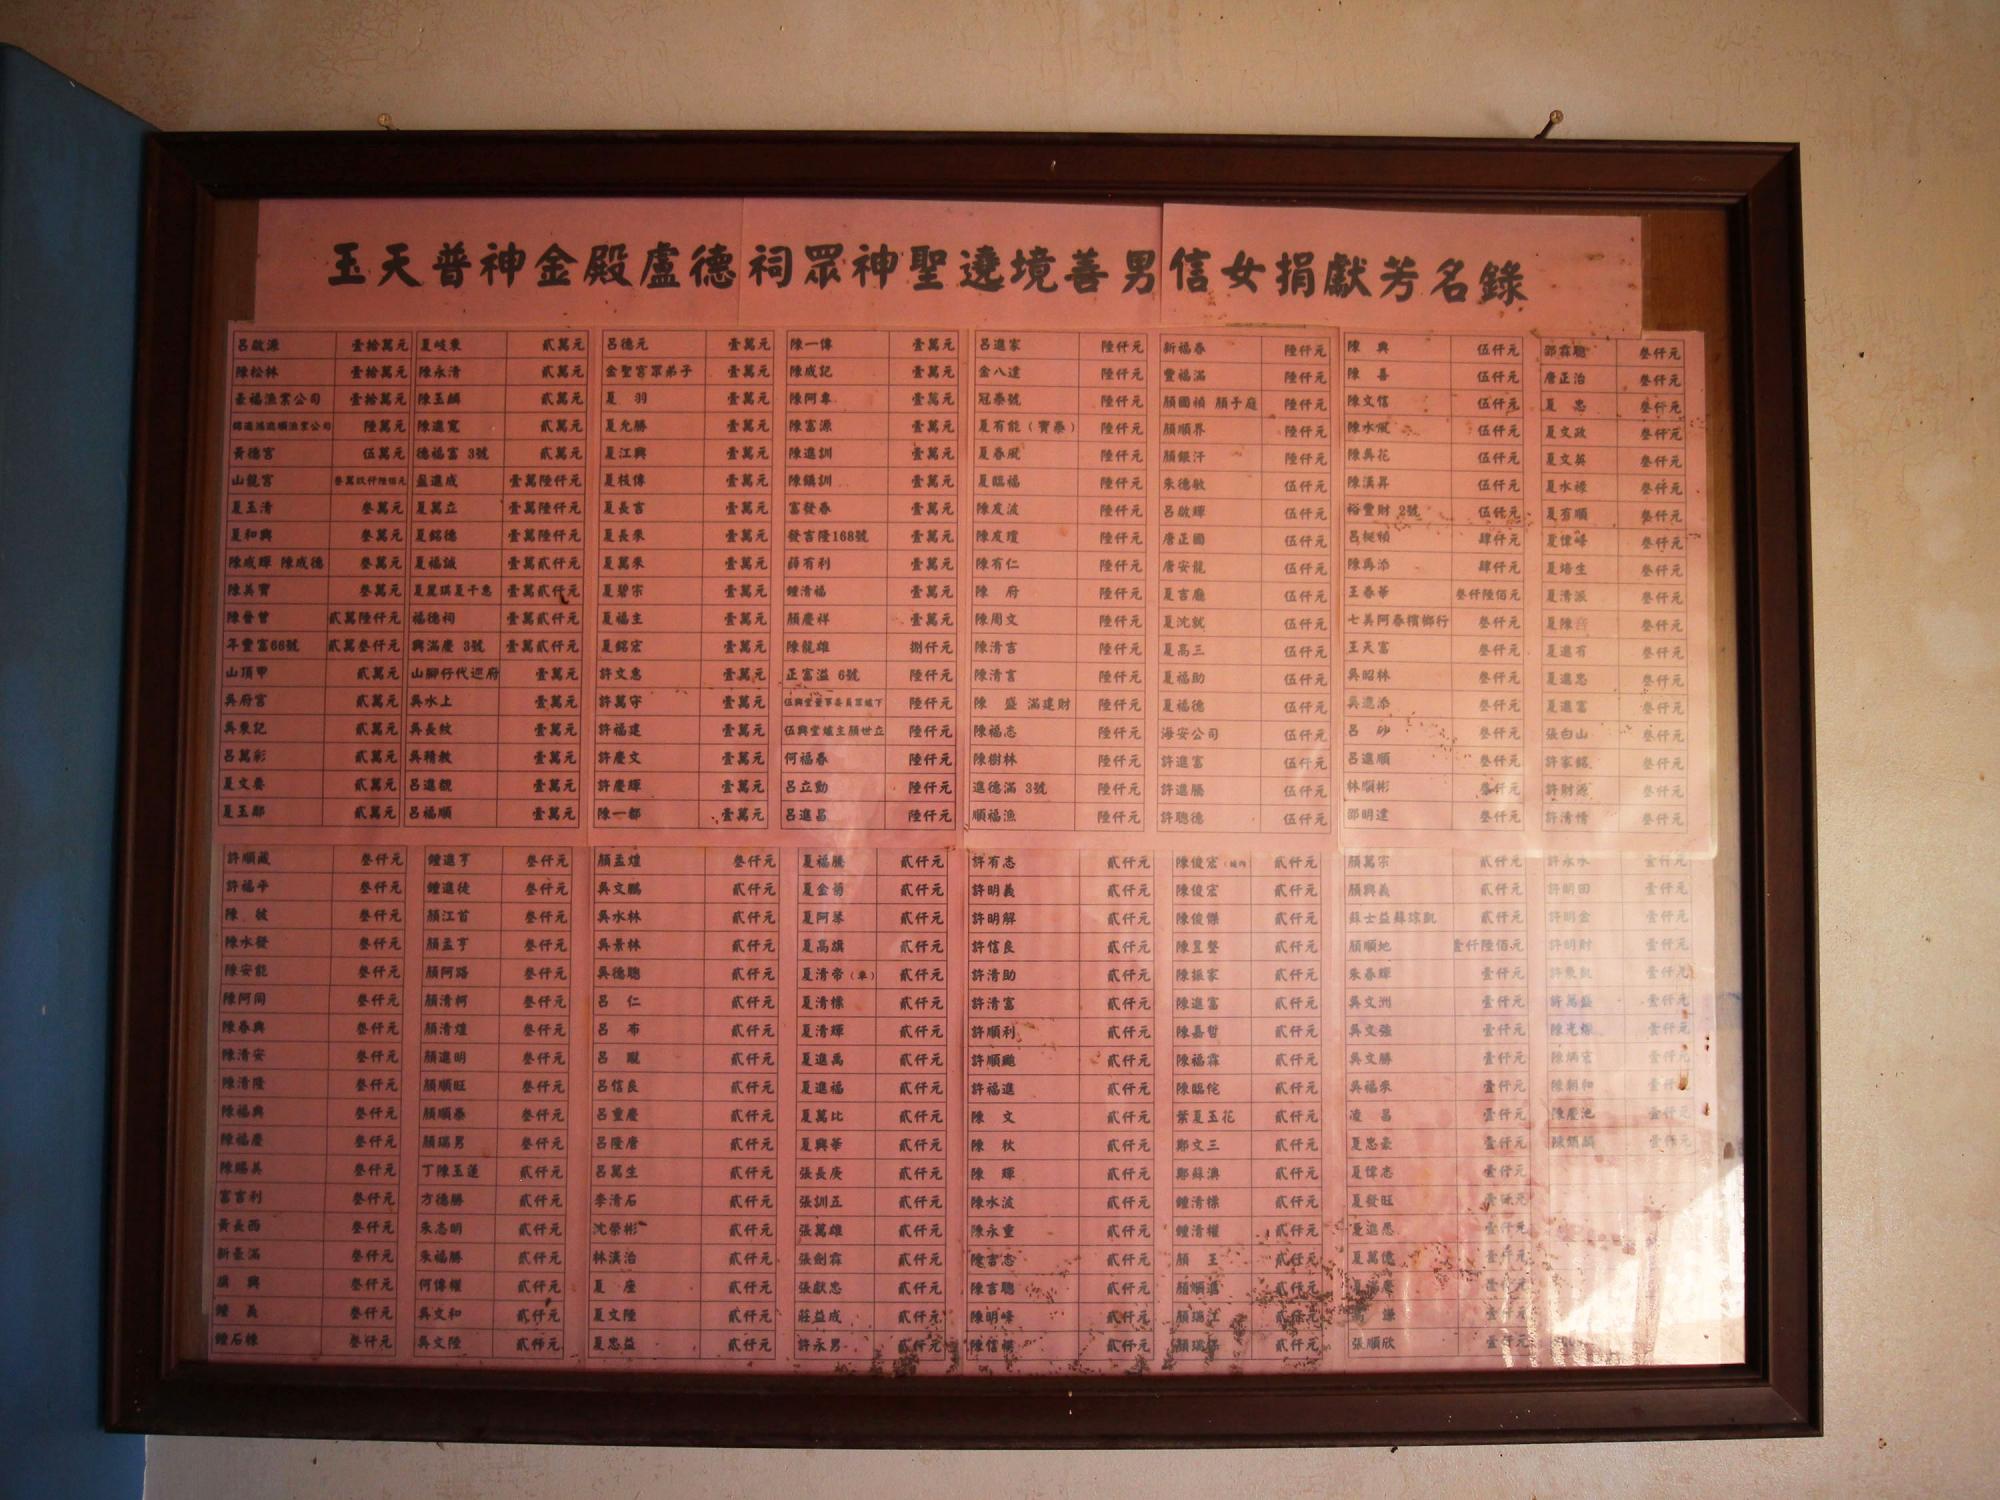 玉天普神金殿盧德祠眾神聖遶境善男信女捐獻芳名錄
呂啟源 壹拾萬元 夏岐東 貳萬元 呂德元 壹萬元 陳一偉 壹萬元 呂進家 陸仟元 新福春 陸仟元 陳 興 伍仟元 郭霖聰 叁仟元
陳松林 壹拾萬元 陳永清 貳萬元 金聖宮眾弟子 壹萬元 陳成記 壹萬元 金八達 陸仟元 豐福滿 陸仟元 陳 喜 伍仟元 唐正治 叁仟元
豪福漁業公司 壹拾萬元 陳玉麟 貳萬元 夏 羽 壹萬元 陳阿專 壹萬元 冠泰號 陸仟元 顏國禎 顏子庭 陸仟元 陳文信 伍仟元 夏 忠 叁仟元
陸萬元 陳進寬 貳萬元 夏允勝 壹萬元 陳富源 壹萬元 夏有能(寶泰) 陸仟元 顏順界 陸仟元 陳水風 伍仟元 夏文政 叁仟元
黃德宮 伍萬元 德福富 3號 貳萬元 夏江興 壹萬元 陳進訓 壹萬元 夏春風 陸仟元 顏銀汗 陸仟元 陳吳花 伍仟元 夏文英 叁仟元
山龍宮 叁萬玖仟陸佰元 盈進成 壹萬陸仟元 夏枝傳 壹萬元 陳鎮訓 壹萬元 夏臨福 陸仟元 朱德敏 伍仟元 陳漢昇 伍仟元 夏水祿 叁仟元
夏玉清 叁萬元 夏萬立 壹萬陸仟元 夏長吉 壹萬元 富發春 壹萬元 陳友波 陸仟元 呂啟輝 伍仟元 裕豐財 2號 伍仟元 夏有順 叁仟元
夏和興 叁萬元 夏銘德 壹萬陸仟元 夏長來 壹萬元 發吉隆168號 壹萬元 陳友瓊 陸仟元 唐正國 伍仟元 肆仟元 夏偉峰 叁仟元
陳成暉 陳成德 叁萬元 夏福誠 壹萬貳仟元 夏萬來 壹萬元 薛有利 壹萬元 陳有仁 陸仟元 唐安龍 伍仟元 陳再添 肆仟元 夏培生 叁仟元
陳美寶 叁萬元 夏麗琪夏千惠 壹萬貳仟元 夏碧宗 壹萬元 鍾清福 壹萬元 陳 府 陸仟元 夏吉廳 伍仟元 王春華 叁仟陸佰元 夏清派 叁仟元
陳晉曾 貳萬陸仟元 福德祠 壹萬貳仟元 夏福主 壹萬元 顏慶祥 壹萬元 陳周文 陸仟元 夏沈就 伍仟元 七美阿春檳榔行 叁仟元 夏陳音 叁仟元
年豐富66號 貳萬叁仟元 興滿慶 3號 壹萬貳仟元 夏銘宏 壹萬元 陳龍雄 捌仟元 陳清吉 陸仟元 夏高三 伍仟元 王天富 叁仟元 夏進有 叁仟元
山頂甲 貳萬元 山腳仔代巡府 壹萬元 許文惠 壹萬元 正富溢 6號 陸仟元 陳清言 陸仟元 夏福助 伍仟元 吳昭林 叁仟元 夏進忠 叁仟元
吳府宮 貳萬元 吳水上 壹萬元 許萬守 壹萬元 伍興堂董事委員眾爐下 陸仟元 陳 盛 滿建財 陸仟元 夏福德 伍仟元 吳進添 叁仟元 夏進富 叁仟元
吳東記 貳萬元 吳長紋 壹萬元 許福建 壹萬元 伍興堂爐主顏世立 陸仟元 陳福志 陸仟元 海安公司 伍仟元 呂 砂 叁仟元 張白山 叁仟元
呂萬彩 貳萬元 吳精教 壹萬元 許慶文 壹萬元 何福春 陸仟元 陳樹林 陸仟元 許進富 伍仟元 呂進順 叁仟元 許家銘 叁仟元
夏文委 貳萬元 呂進觀 壹萬元 許慶輝 壹萬元 呂立勳 陸仟元 進德滿 3號 陸仟元 許進騰 伍仟元 林順彬 叁仟元 許財源 叁仟元
夏玉鄰 貳萬元 呂福順 壹萬元 陳一郎 壹萬元 呂進昌 陸仟元 順福漁 陸仟元 許聰德 伍仟元 邵明達 叁仟元 許清情 叁仟元
許順藏 叁仟元 鍾進亨 叁仟元 顏孟煌 叁仟元 夏福騰 貳仟元 許有志 貳仟元 陳俊宏 貳仟元 顏萬宗 貳仟元 許永水 壹仟元
許福平 叁仟元 鍾進徒 叁仟元 吳文鵬 貳仟元 夏金菊 貳仟元 許明義 貳仟元 陳俊宏 貳仟元 顏興義 貳仟元 許明田 壹仟元
陳 彼 叁仟元 顏江首 叁仟元 吳水林 貳仟元 夏阿琴 貳仟元 許明解 貳仟元 陳俊傑 貳仟元 蘇士益蘇琮凱 貳仟元 許明金 壹仟元
陳水發 叁仟元 顏孟亨 叁仟元 吳景林 貳仟元 夏高旗 貳仟元 許信良 貳仟元 陳昱蓁 貳仟元 顏順地 壹仟陸佰元 許明財 壹仟元
陳安能 叁仟元 顏阿路 叁仟元 吳德聰 貳仟元 夏清帝(車) 貳仟元 許清助 貳仟元 陳振家 貳仟元 朱春輝 壹仟元 許東凱 壹仟元
陳阿閃 叁仟元 顏清柯 叁仟元 呂 仁 貳仟元 夏清標 貳仟元 許清富 貳仟元 陳進富 貳仟元 吳文洲 壹仟元 許萬盛 壹仟元
陳春興 叁仟元 顏清煌 叁仟元 呂 布 貳仟元 夏清輝 貳仟元 許順利 貳仟元 陳嘉哲 貳仟元 吳文強 壹仟元 壹仟元
陳清安 叁仟元 顏進明 叁仟元 呂 貳仟元 夏進萬 貳仟元 許順颱 貳仟元 陳福霖 貳仟元 吳文勝 壹仟元 陳炳宏 壹仟元
陳清隆 叁仟元 顏順旺 叁仟元 呂信良 貳仟元 夏進福 貳仟元 許福進 貳仟元 陳臨佗 貳仟元 吳福來 壹仟元 陳朝和 壹仟元
陳福興 叁仟元 顏順泰 叁仟元 呂重慶 貳仟元 夏萬比 貳仟元 陳 文 貳仟元 葉夏玉花 貳仟元 凌 昌 壹仟元 陳慶池 壹仟元
陳福慶 叁仟元 顏瑞男 叁仟元 呂隆唐 貳仟元 夏興華 貳仟元 陳 秋 貳仟元 鄭文三 貳仟元 夏忠豪 壹仟元 壹仟元
陳賜美 叁仟元 丁陳玉蓮 貳仟元 呂萬生 貳仟元 張長庚 貳仟元 陳 輝 貳仟元 鄭蘇滇 貳仟元 夏偉志 壹仟元
富吉利 叁仟元 方德勝 貳仟元 李清石 貳仟元 張訓五 貳仟元 陳水波 貳仟元 鍾清標 貳仟元 夏發旺 壹仟元
黃長西 叁仟元 朱志明 貳仟元 沈榮彬 貳仟元 張萬雄 貳仟元 陳永重 貳仟元 鍾清權 貳仟元 夏進愚 壹仟元
新豪滿 叁仟元 朱福勝 貳仟元 林漢治 貳仟元 張劍霖 貳仟元 陳言志 貳仟元 顏 王 貳仟元 夏萬億 壹仟元
旗 興 叁仟元 何偉耀 貳仟元 夏 座 貳仟元 張獻忠 貳仟元 陳言聰 貳仟元 顏順進 貳仟元 夏滿慶 壹仟元
鍾 義 叁仟元 吳文和 貳仟元 夏文陸 貳仟元 莊益成 貳仟元 陳明峰 貳仟元 顏瑞江 貳仟元 謙 壹仟元
鍾石棟 叁仟元 吳文陸 貳仟元 夏忠益 貳仟元 許永男 貳仟元 陳信 貳仟元 顏瑞 貳仟元 張順欣 壹仟元